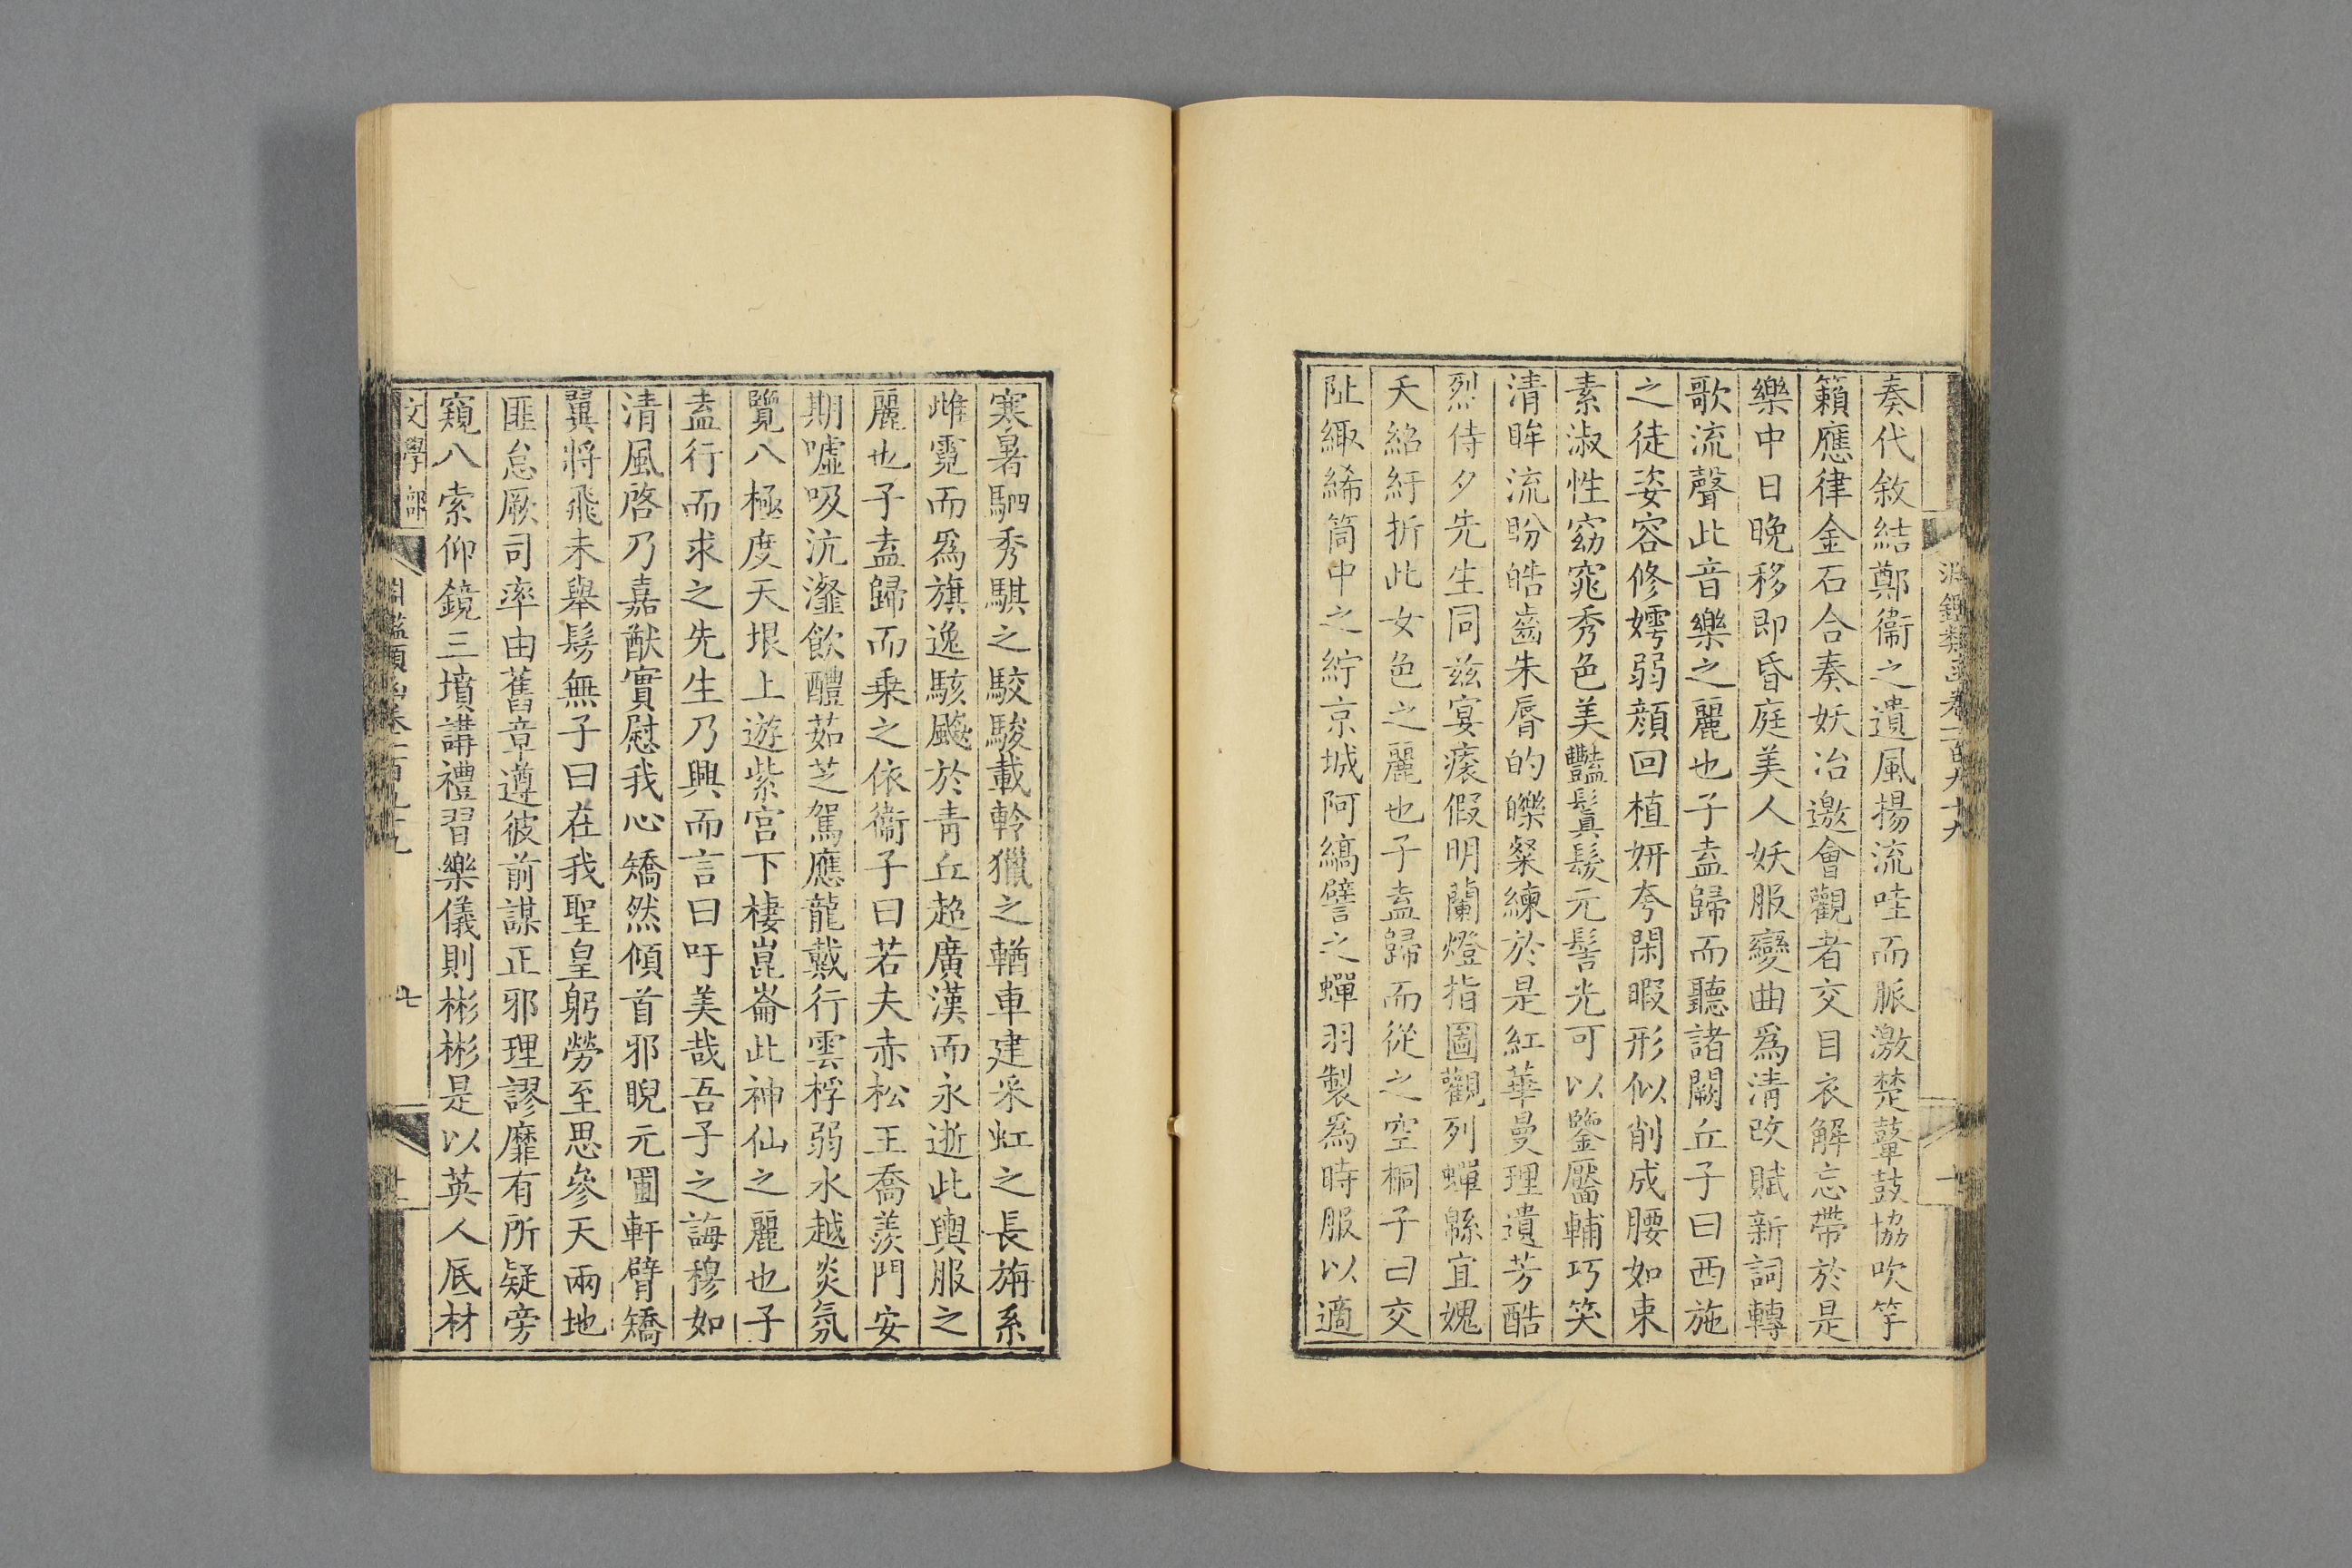 淵鑑類函卷一百九十九
奏代敘結鄭衞之遺風揚流哇而脈激楚鼙鼓協吹竽
籟應律金石合奏妖冶邀會觀者交目衣解忘帶於是
樂中日晚移即昏庭美人妖服變曲爲清改賦新詞轉
歌流聲此音樂之麗也子盍歸而聽諸闕丘子曰西施
之徒姿容修嫮弱顔回植妍夸閑暇形似削成腰如束
素淑性窈窕秀色美豔鬒髮元髻光可以鑒靨輔巧笑
清眸流盼皓齒朱脣的皪粲練於是紅華曼理遺芳酷
烈侍夕先生同兹宴㾿假明蘭燈指圖觀列蟬緜宜愧
夭紹紆折此女色之麗也子盍歸而從之空桐子曰交
阯緅絺筒中之紵京城阿縞譬之蟬羽製爲時服以適
寒暑駟秀騏之駮駿載軨獵之輶車建采虹之長旃系
雌霓而爲旗逸駭飈於青丘超廣漢而永逝此輿服之
麗也子盍歸而乗之依衞子曰若夫赤松王喬羨門安
期噓吸沆瀣飲醴茹芝駕應龍戴行雲桴弱水越炎氛
覽八極度天垠上遊紫宫下棲崑崙此神仙之麗也子
盍行而求之先生乃興而言曰吁美哉吾子之誨穆如
清風啓乃嘉猷實慰我心矯然傾首邪睨元圃軒臂矯
翼將飛未舉髣無子曰在我聖皇躬勞至思參天兩地
匪怠厥司率由舊章遵彼前謀正邪理謬靡有所疑旁
窺八索仰鏡三墳講禮習樂儀則彬彬是以英人底材
文學部
淵鑑類函卷一百九十九
七